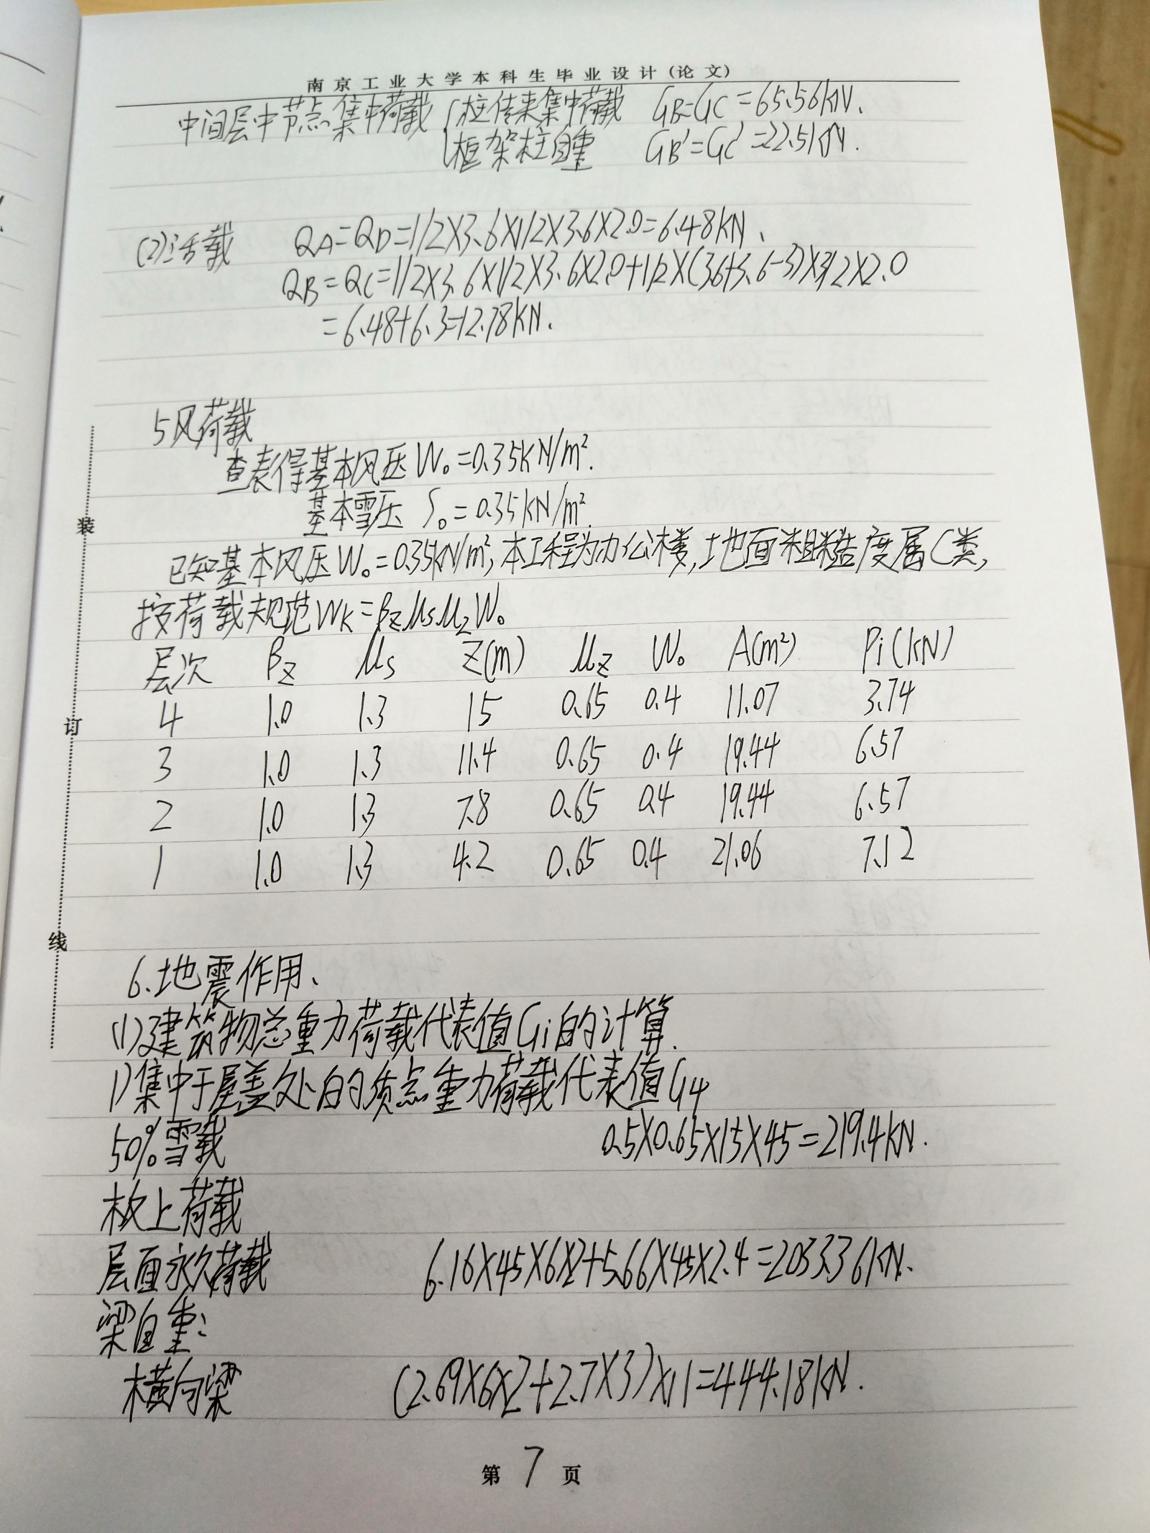 南京工业大学本科生毕业设计(论文)
中间层中节点集中荷载{柱传来集中荷载 GB=GC=65.56kN.
框架柱自重 GB'=GC'=22.51kN.
(2)活载 QA=QD=1/2X3.6X1/2X3.6X2.0=6.48kN.
QB=QC=1/2X3.6X1/2X3.6X2.0+1/2X(3.6+3.6-3)X3/2X2.0
=6.48+6.3=12.78kN.
5风荷载
查表得基本风压W₀=0.35kN/m².
基本雪压 S₀=0.35kN/m².
已知基本风压W₀=0.35kN/m²,本工程为办公楼,地面粗糙度属C类,
按荷载规范WK=βzμsμzW₀
层次 βz μs Z(m) μz W₀ A(m²) Pi(kN)
4 1.0 1.3 15 0.65 0.4 11.07 3.74
3 1.0 1.3 11.4 0.65 0.4 19.44 6.57
2 1.0 1.3 7.8 0.65 0.4 19.44 6.57
1 1.0 1.3 4.2 0.65 0.4 21.06 7.12
6.地震作用、
(1)建筑物总重力荷载代表值Gi的计算.
1)集中于屋盖处的质点重力荷载代表值G4
50%雪载 0.5X0.65X15X45=219.4kN.
板上荷载
层面永久荷载 6.16X45X6X2+5.66X45X2.4=2033.36kN.
梁自重:
横向梁 (2.69X6X2+2.7X3)X11=444.18kN.
装
订
线
第 7 页